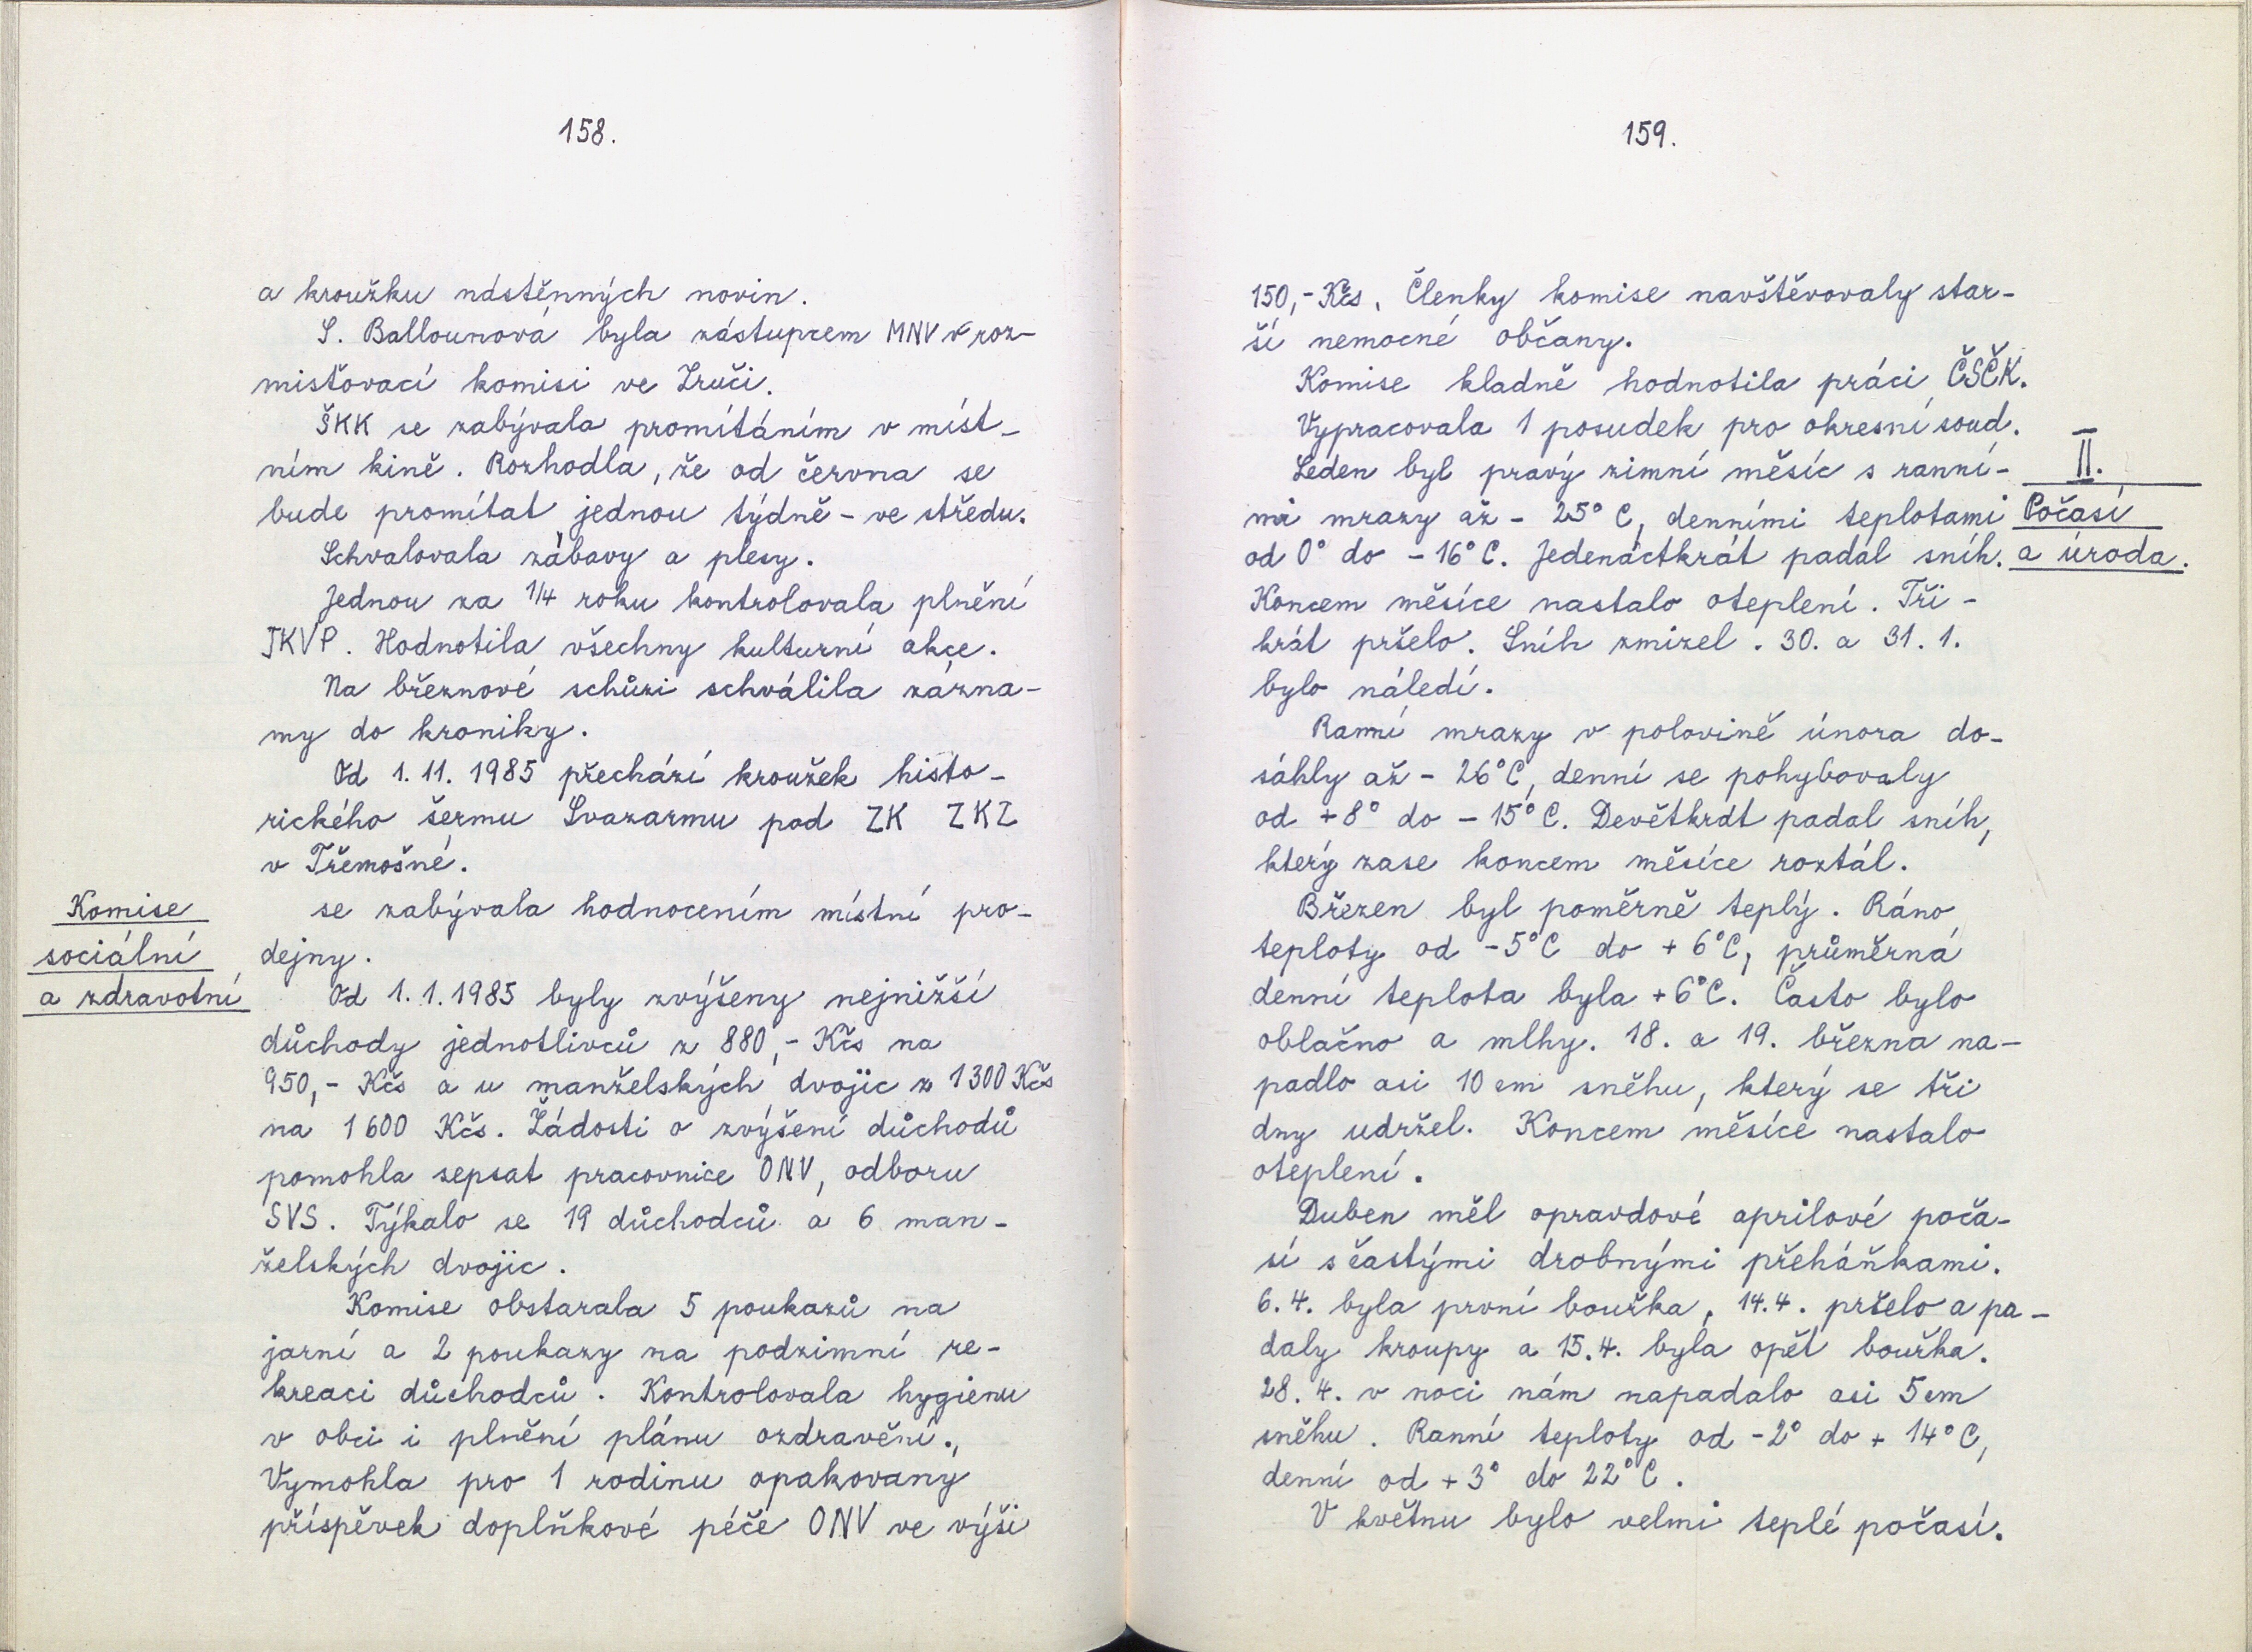 158.
a kroužku nástěnných novin.
S. Ballounová byla zástupcem MNV v roz-
misťovací komisi ve Zruči.
ŠKK se zabývala promítáním v míst-
ním kině. Rozhodla, že od června se
bude promítat jednou týdně - ve středu.
Schvalovala zábavy a plesy.
Jednou za 1/4 roku kontrolovala plnění
JKVP. Hodnotila všechny kulturní akce.
Na březnové schůzi schválila zázna-
my do kroniky.
Od 1. 11. 1985 přechází kroužek histo-
rického šermu Svazarmu pod ZK ZKZ
v Třemošné.
Komise
sociální
a zdravotní
se zabývala hodnocením místní pro-
dejny.
Od 1. 1. 1985 byly zvýšeny nejnižší
důchody jednotlivců z 880,- Kčs na
950,- Kčs a u manželských dvojic z 1300 Kčs
na 1600 Kčs. Žádosti o zvýšení důchodů
pomohla sepsat pracovnice ONV, odboru
SVS. Týkalo se 19 důchodců a 6 man-
želských dvojic.
Komise obstarala 5 poukazů na
jarní a 2 poukazy na podzimní re-
kreaci důchodců. Kontrolovala hygienu
v obci i plnění plánu ozdravění.
Vymohla pro 1 rodinu opakovaný
příspěvek doplňkové péče ONV ve výši
159.
150,- Kčs. Členky komise navštěvovaly star-
ší nemocné občany.
Komise kladně hodnotila práci ČSČK.
Vypracovala 1 posudek pro okresní soud.
II.
Počasí
a úroda.
Leden byl pravý zimní měsíc s ranní-
mi mrazy až - 25° C, denními teplotami
od 0° do - 16° C. Jedenáctkrát padal sníh.
Koncem měsíce nastalo oteplení. Tři-
krát pršelo. Sníh zmizel. 30. a 31. 1.
bylo náledí.
Ranní mrazy v polovině února do-
sáhly až - 26° C, denní se pohybovaly
od + 8° do - 15° C. Devětkrát padal sníh,
který zase koncem měsíce roztál.
Březen byl poměrně teplý. Ráno
teploty od - 5° C do + 6° C, průměrná
denní teplota byla + 6° C. Často bylo
oblačno a mlhy. 18. a 19. března na-
padlo asi 10 cm sněhu, který se tři
dny udržel. Koncem měsíce nastalo
oteplení.
Duben měl opravdové aprilové poča-
sí s častými drobnými přeháňkami.
6. 4. byla první bouřka, 14. 4. pršelo a pa-
daly kroupy a 15. 4. byla opět bouřka.
28. 4. v noci nám napadalo asi 5 cm
sněhu. Ranní teploty od - 2° do + 14° C,
denní od + 3° do 22° C.
V květnu bylo velmi teplé počasí.